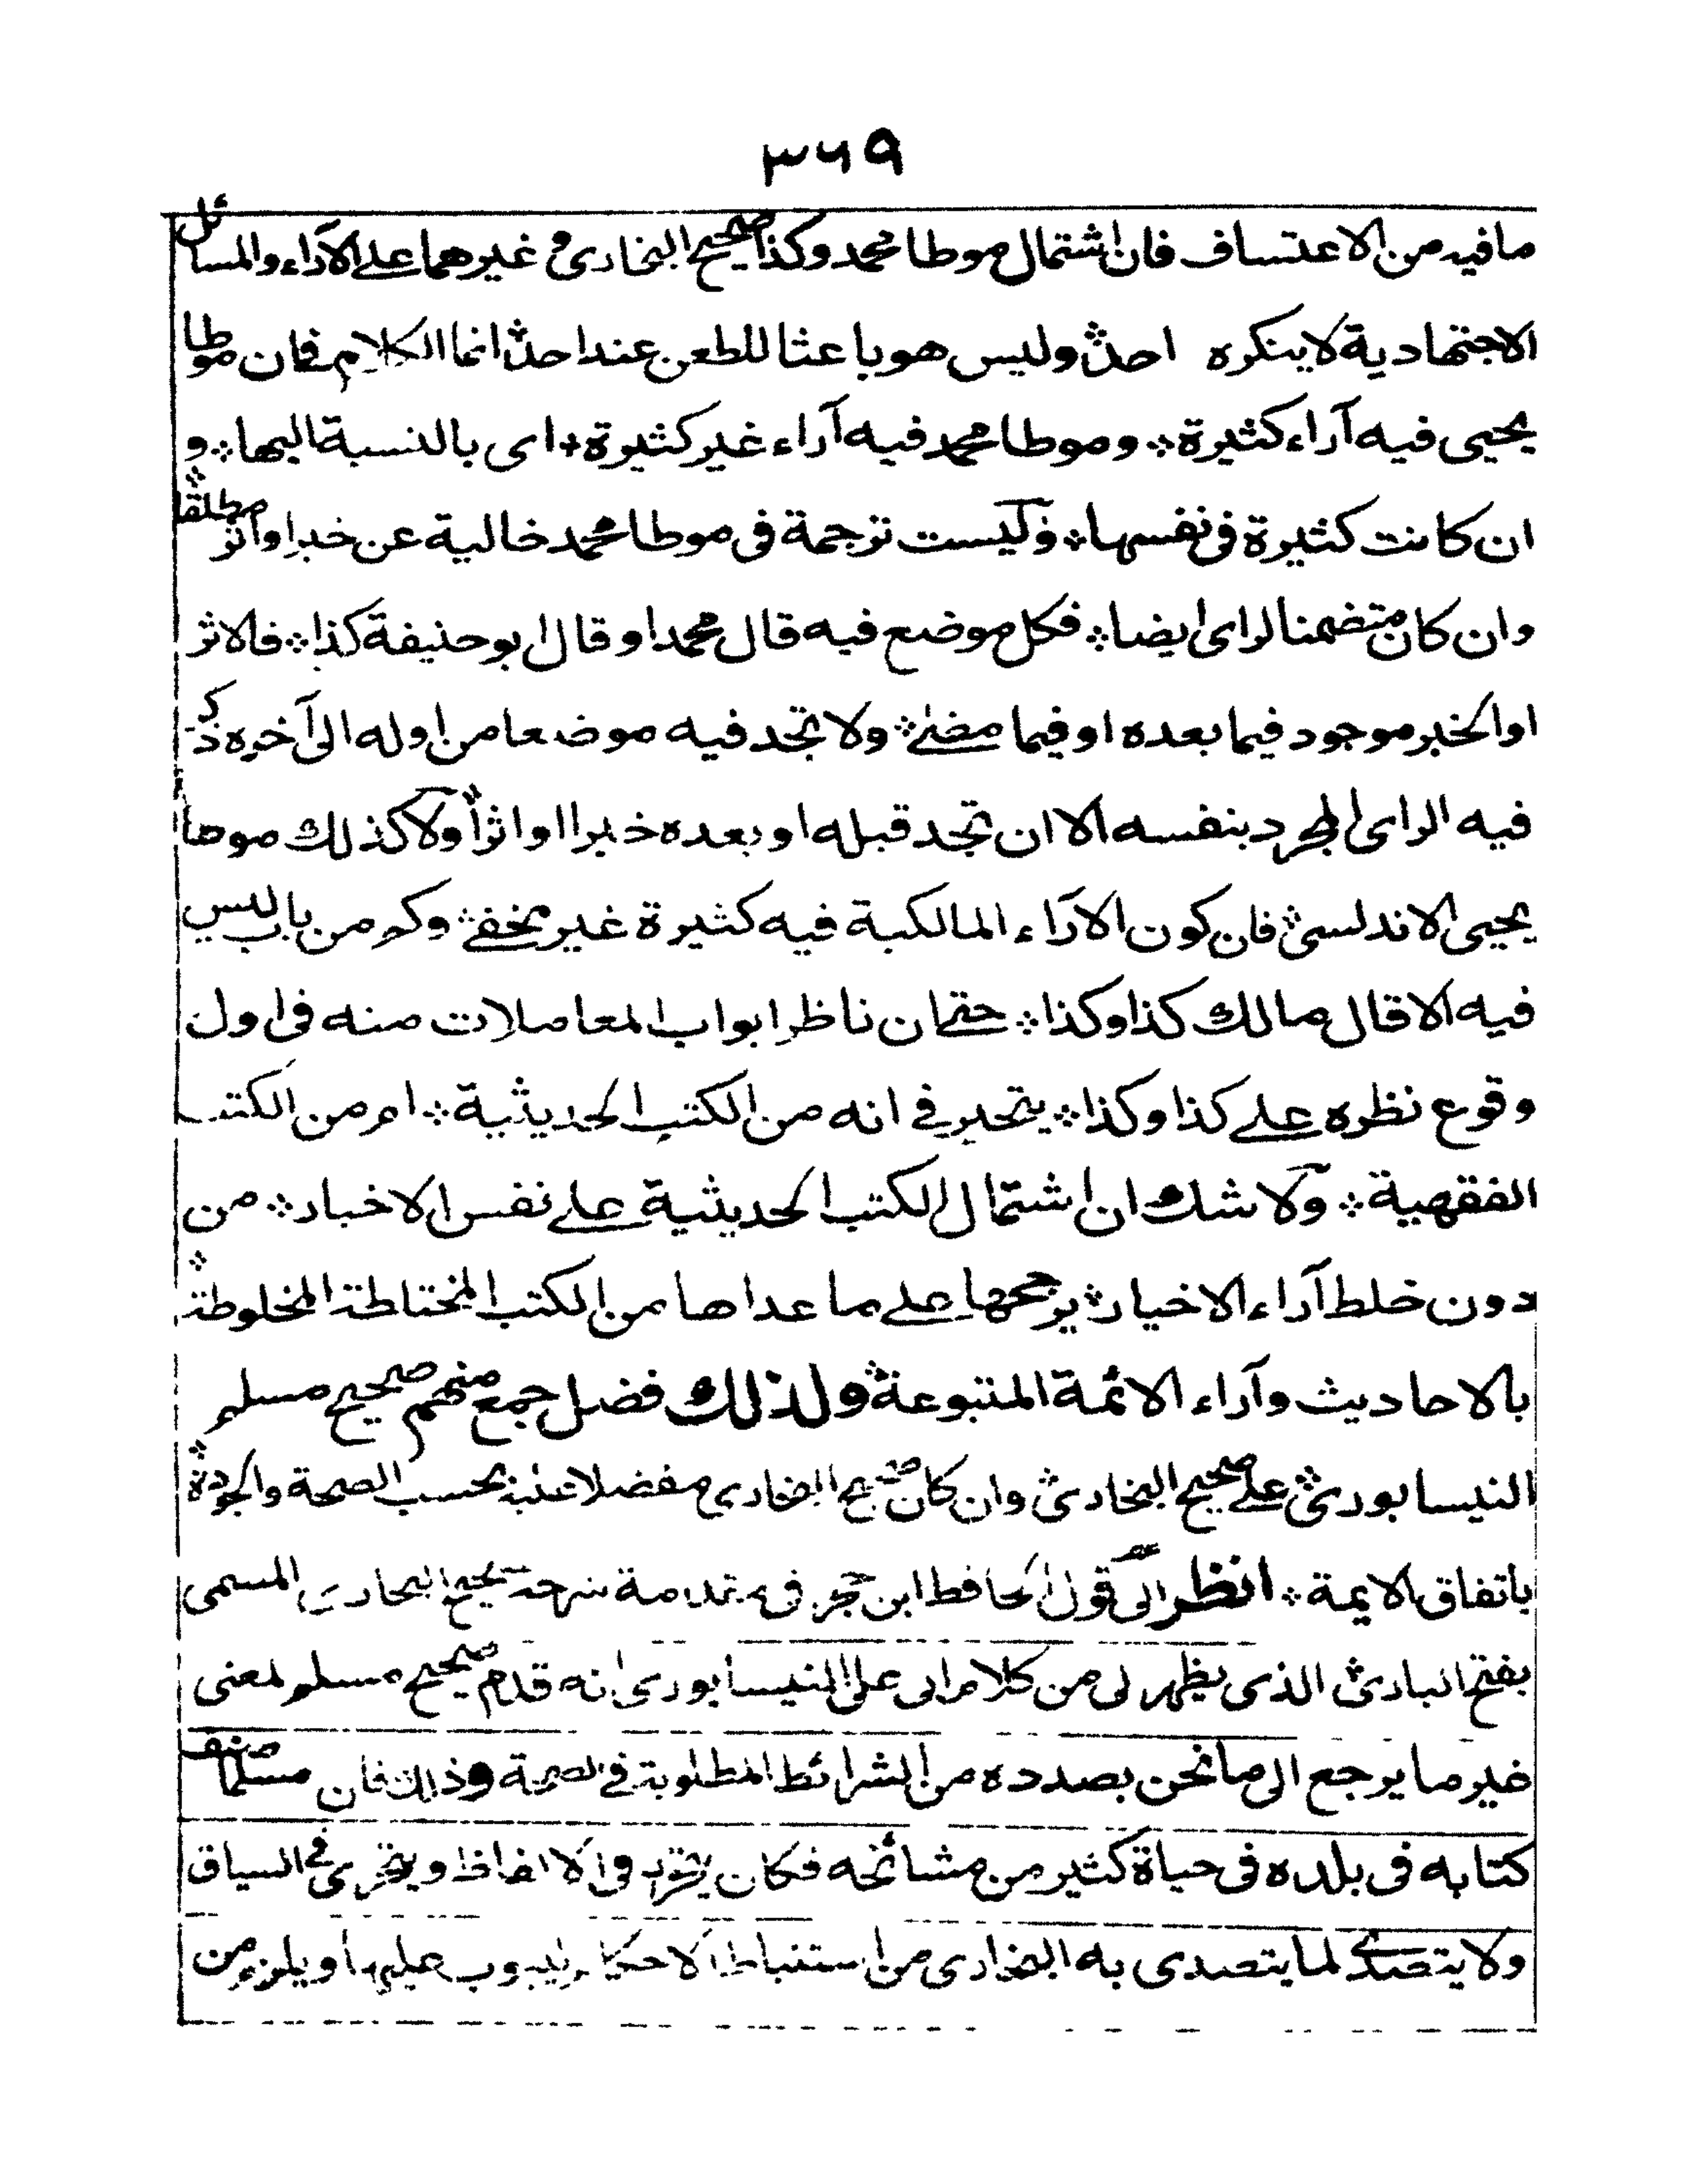 ٣٦٩
مافيه من الاعتساف فان اشتمال موطا محمد وكذا صحيح البخاري و غيرهما على الآراء والمسائل
الاجتهادية لا ينكره احد؞ وليس هو باعثا للطعن عند احد؞ انما الكلام فان موطا
يحيى فيه آراء كثيرة؞ وموطا محمد فيه آراء غير كثيرة؞ اى بالنسبة اليها؞ و
ان كانت كثيرة فى نفسها؞ وليست ترجمة فى موطا محمد خالية عن خبر او اثر مطلقا؞
وان كان متضمنا لراى ايضا؞ فكل موضع فيه قال محمد او قال ابو حنيفة كذا؞ فالاثر
او الخبر موجود فيما بعده او فيما مضى؞ ولا تجد فيه موضعا من اوله الى آخره ذكر
فيه الراى المجرد بنفسه الا ان تجد قبله او بعده خبرا او اثرا؞ ولا كذلك موطا
يحيى الاندلسى؞ فان كون الآراء المالكية فيه كثيرة غير مخفى؞ وكم من باب ليس
فيه الا قال مالك كذا وكذا؞ حتى ان ناظر ابواب المعاملات منه فى اول
وقوع نظره على كذا وكذا؞ يتحير فى انه من الكتب الحديثية؞ ام من الكتب
الفقهية؞ ولا شك ان اشتمال الكتب الحديثية على نفس الاخبار؞ من
دون خلط آراء الاخيار؞ يرجحها على ما عداها من الكتب المختلطة المخلوطة؞
بالاحاديث وآراء الائمة المتبوعة؞ ولذلك فضل جمع منهم صحيح مسلم
النيسابورى؞ على صحيح البخارى؞ وان كان صحيح البخارى مفضلا عليه بحسب الصحة والجودة؞
باتفاق الايمة؞ انظر الى قول الحافظ ابن حجر فى مقدمة شرحه صحيح البخارى المسمى
بفتح البارى؞ الذى يظهر لى من كلام ابى على النيسابورى انه قدم صحيح مسلم لمعنى
غير ما يرجع الى ما نحن بصدده من الشرائط المطلوبة فى الصحة وذلك فان مسلما صنف
كتابه فى بلده فى حياة كثير من مشائخه فكان يتحرز فى الالفاظ ويتحرى فى السياق
ولا يتصدى لما يتصدى به البخارى من استنباط الاحكام ليبوب عليها ويلزم من